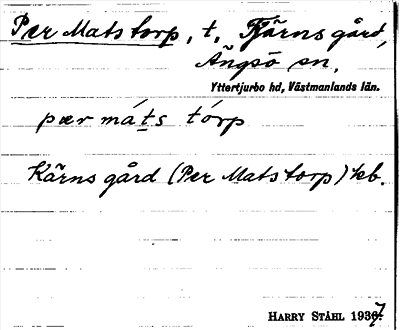 Per Mats torp, t. Kärnsgård,
Ängsö sn.
Yttertjurbo hd, Västmanlands län.
pær má̀ts tórp
Kärnsgård (Per Mats torp) kb.
HARRY STÅHL 1937.